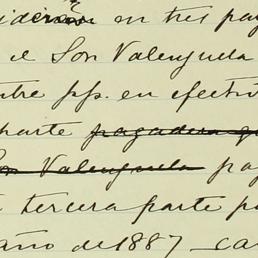 en tres pag
el Son Valenzuela
bre pp. en efectiv
parte pagadera qu
on Valenzuela pag
tercera parte p
año de 1887 ca